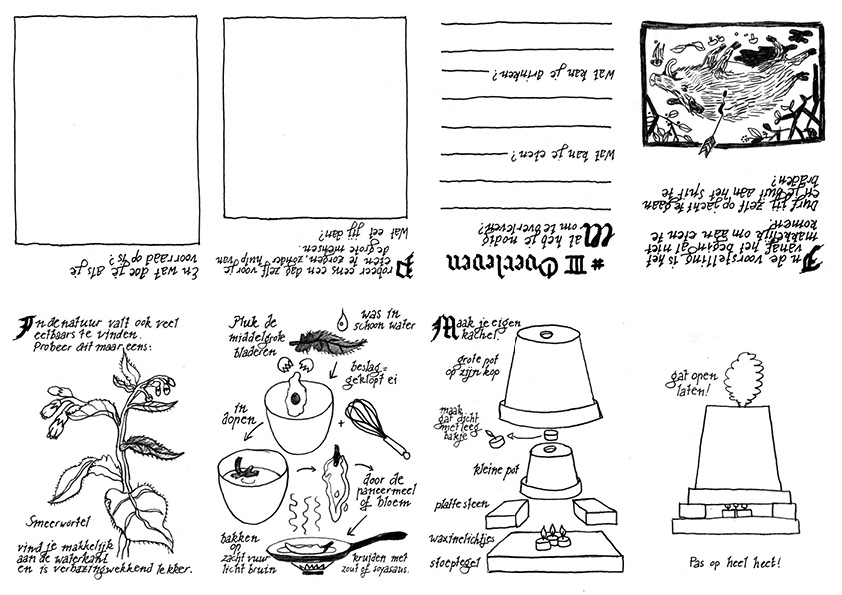 # III Overleven
Wat heb je nodig
om te overleven?
Wat kan je eten?
Wat kan je drinken?
In de voorstelling is het
vanaf het begin al niet
makkelijk om aan eten te
komen.
Durf jij zelf op jacht te gaan
en je buit aan het spit te
braden?
Probeer eens een dag zelf voor je
eten te zorgen, zonder hulp van
de grote mensen.
Wat eet jij dan?
En wat doe je als je
voorraad op is?
In de natuur valt ook veel
eetbaars te vinden.
Probeer dit maar eens:
Smeerwortel
vind je makkelijk
aan de waterkant
en is verbazingwekkend lekker.
Pluk de
middelgrote
bladeren
was in
schoon water
beslag =
geklopt ei
in
dopen
+
door de
paneermeel
of bloem
bakken
op
zacht vuur
licht bruin
kruiden met
zout of sojasaus.
Maak je eigen
kachel.
grote pot
op zijn kop
maak
gat dicht
met leeg
bakje
kleine pot
platte steen
waxinelichtjes
stoeptegel
gat open
laten!
Pas op heel heet!